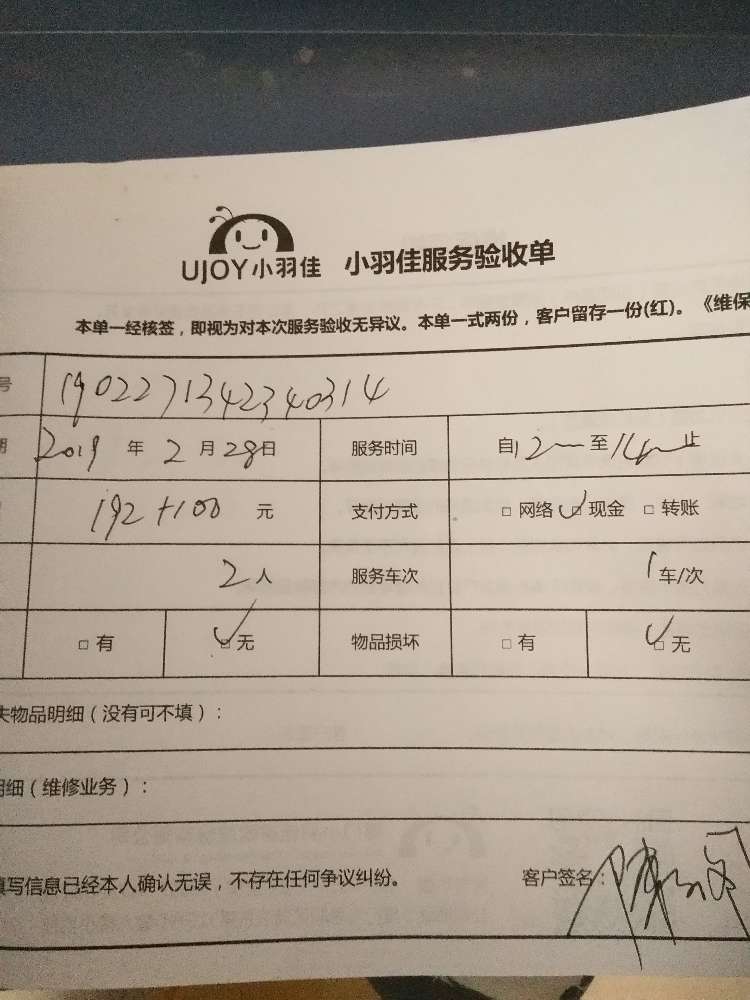 UJOY小羽佳 小羽佳服务验收单
本单一经核签，即视为对本次服务验收无异议。本单一式两份，客户留存一份(红)。《维保
号 1902271342340314
期 2019 年 2 月 28 日 服务时间 自 12 至 14 止
192+100 元 支付方式 □ 网络 ☑ 现金 □ 转账
2 人 服务车次 1 车/次
□ 有 ☑ 无 物品损坏 □ 有 ☑ 无
失物品明细（没有可不填）：
明细（维修业务）：
填写信息已经本人确认无误，不存在任何争议纠纷。 客户签名：